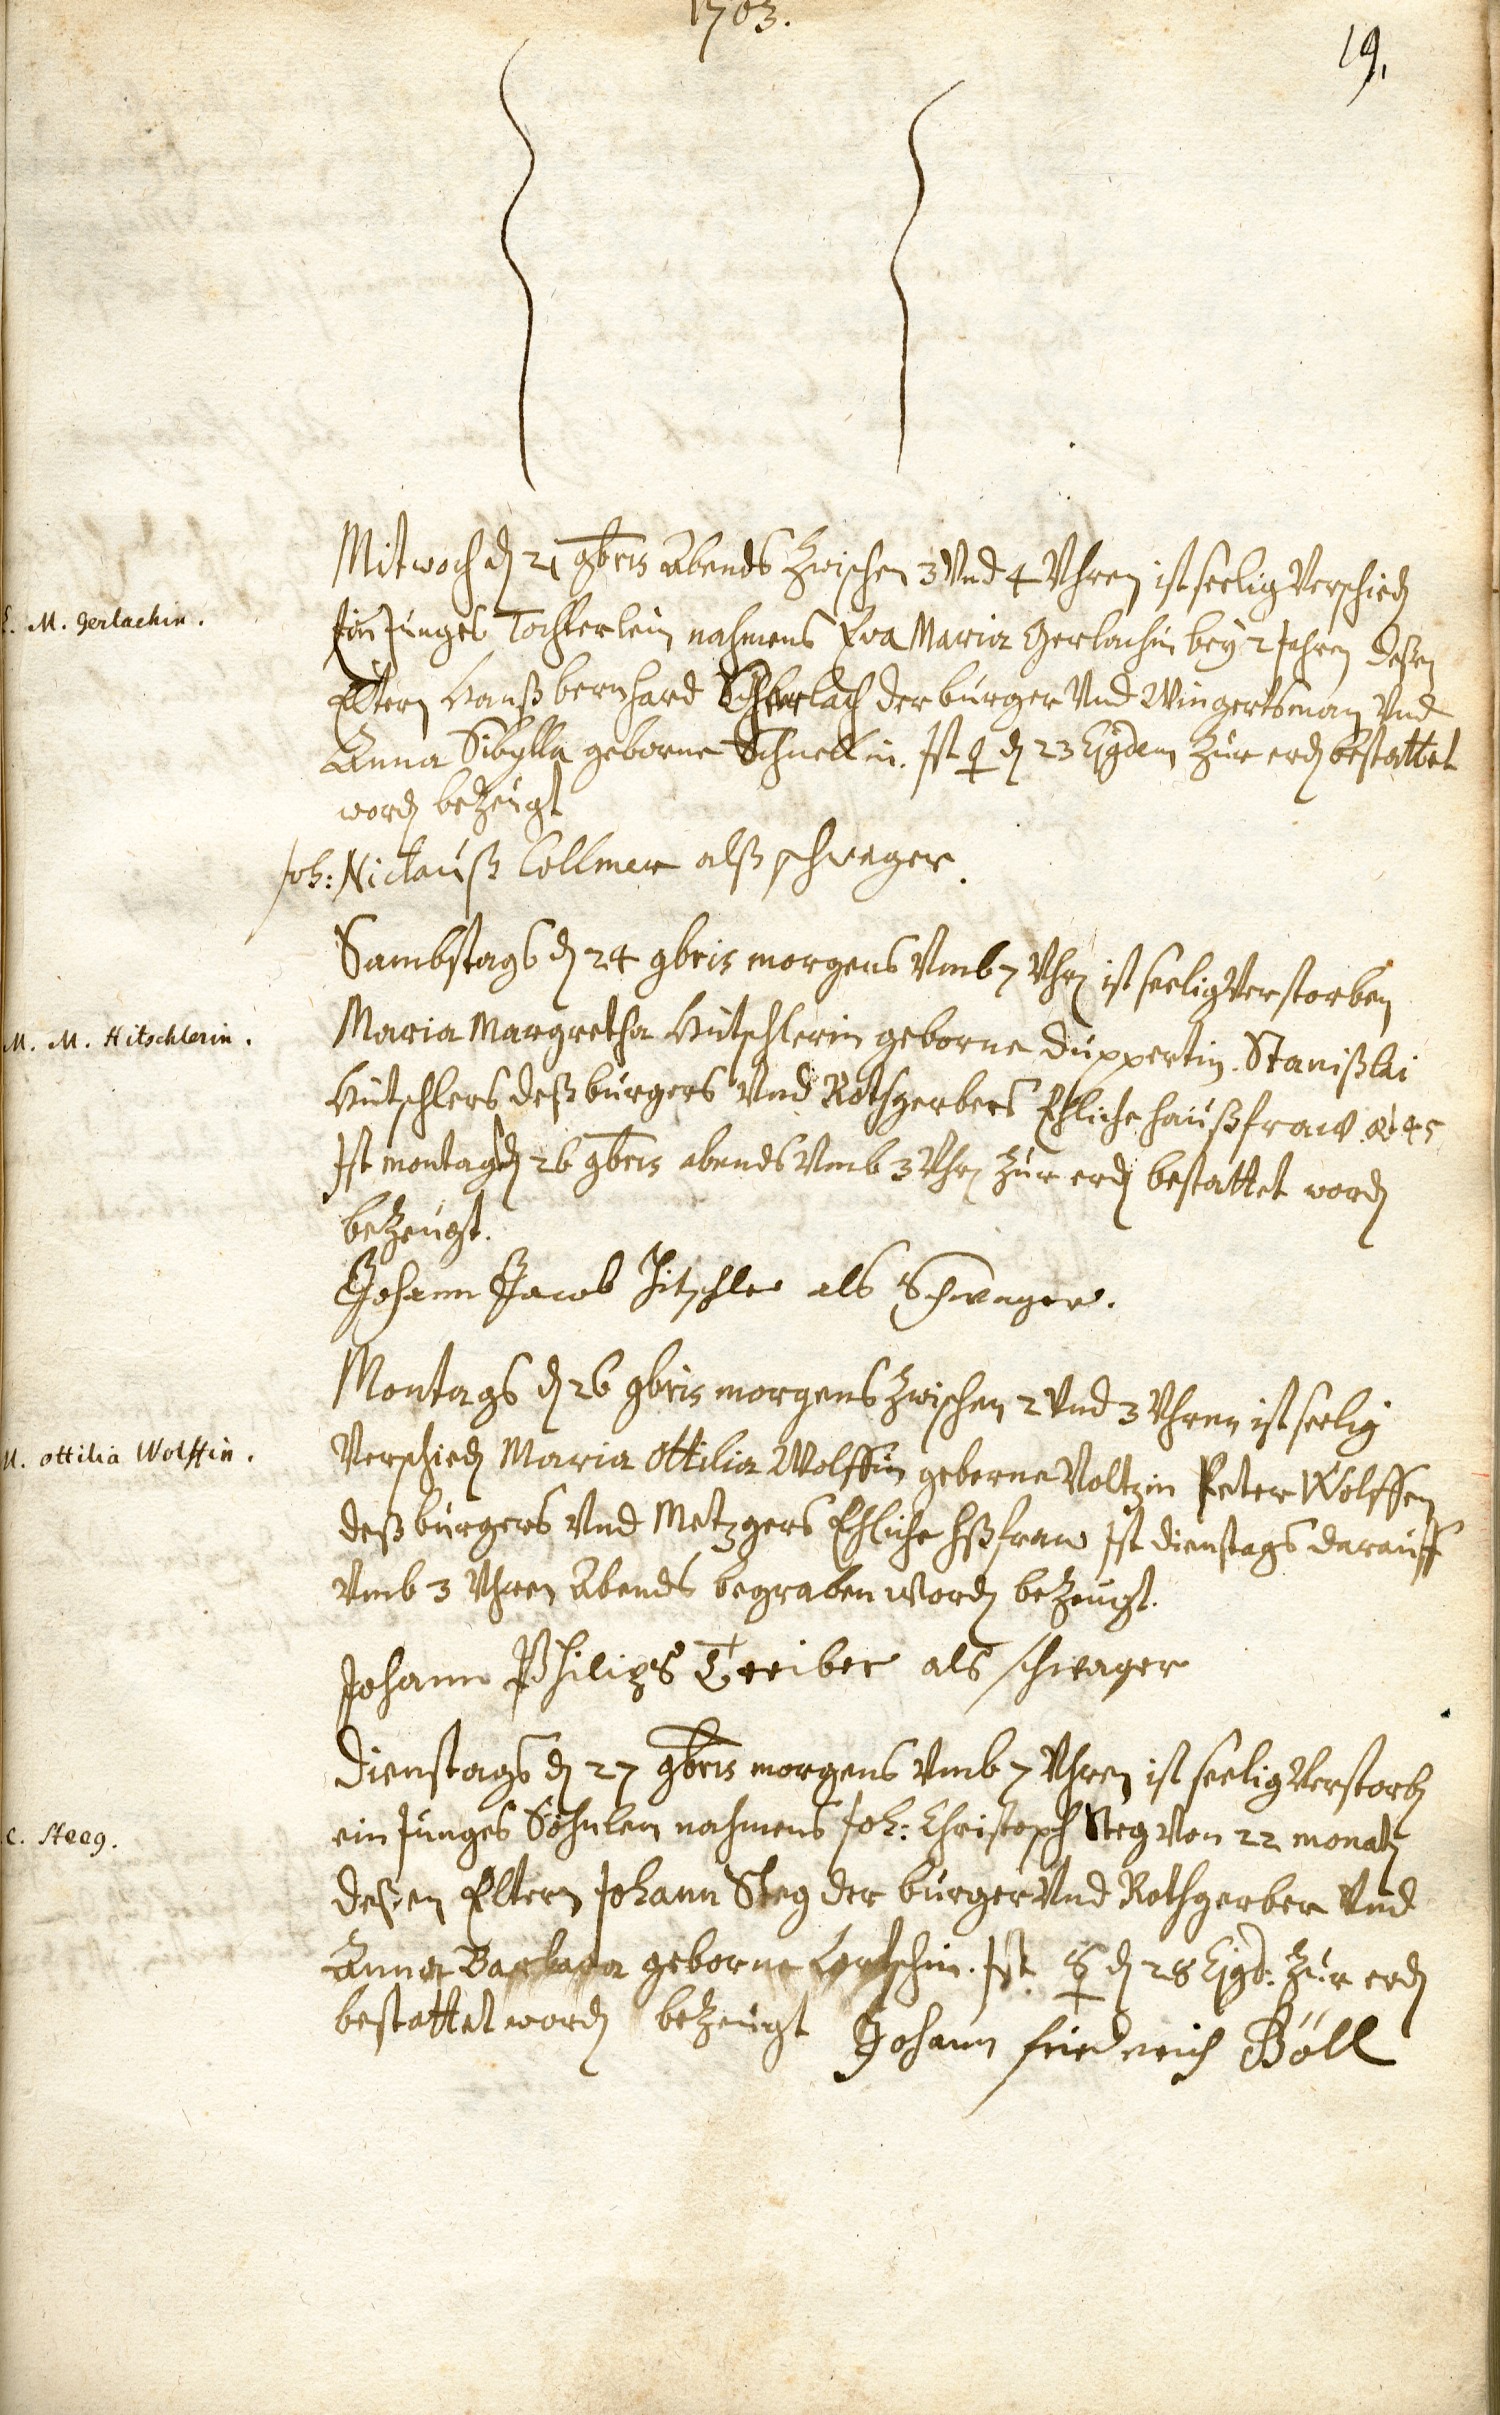 1703.
19.
Mitwoch d 21 9bris Abends Zwischen 3 Vnd 4 Vhren ist seelig Verschied
E. M. Gerlachin.
Ein Junges Tochterlein nahmens Eva Maria Gerlachin beÿ 2 Jahren deßen
Eltern Hanß bernhard Gherlach der bürger Vnd Wingertsman Vnd
Anna Sibÿlla geborne Schnellin. Ist ♀ d 23 Ejgdem Zúr erd bestattet
word beZeúgt
Joh: Niclaúß Collmer alß schwager.
Sambstags d 24 9bris morgens Vmb 7 Vhr ist seelig Verstorben
M. M. Hitschlerin.
Maria Margretha Hütschlerin geborne Düppertin. Stanißlai
Hütschlers deß bürgers Vnd Rothgerbers Ehliche haußfraw. æt 45
Ist montag d 26 9bris abends Vmb 3 Vhr Zúr erd bestattet word
beZeúgt.
Johann Jacob Hitschler als Schwager.
Montags d 26 9bris morgens Zwischen 2 Vnd 3 Vhren ist seelig
M. ottilia Wolffin.
Verschied Maria Ottilia Wolffin geborne Voltzin Peter Wolffen
deß bürgers Vnd Metzgers Ehliche hßfraw Ist dienstags daraúff
Vmb 3 Vhren Abends begraben word beZeúgt.
Johann Philips Treiber als schwager
Dienstags d 27 9bris morgens Vmb 7 Vhren ist seelig Verstorb
C. Steeg.
ein Junges Söhnlen nahmens Joh: Christoph Steg Von 22 monat
deßen Eltern Johann Steg der bürger Vnd Rothgerber Vnd
Anna Barbara geborne Ist ☿ d 28 Ejgd: Zúr erd
bestattet word beZeúgt Johann friedrich Böll